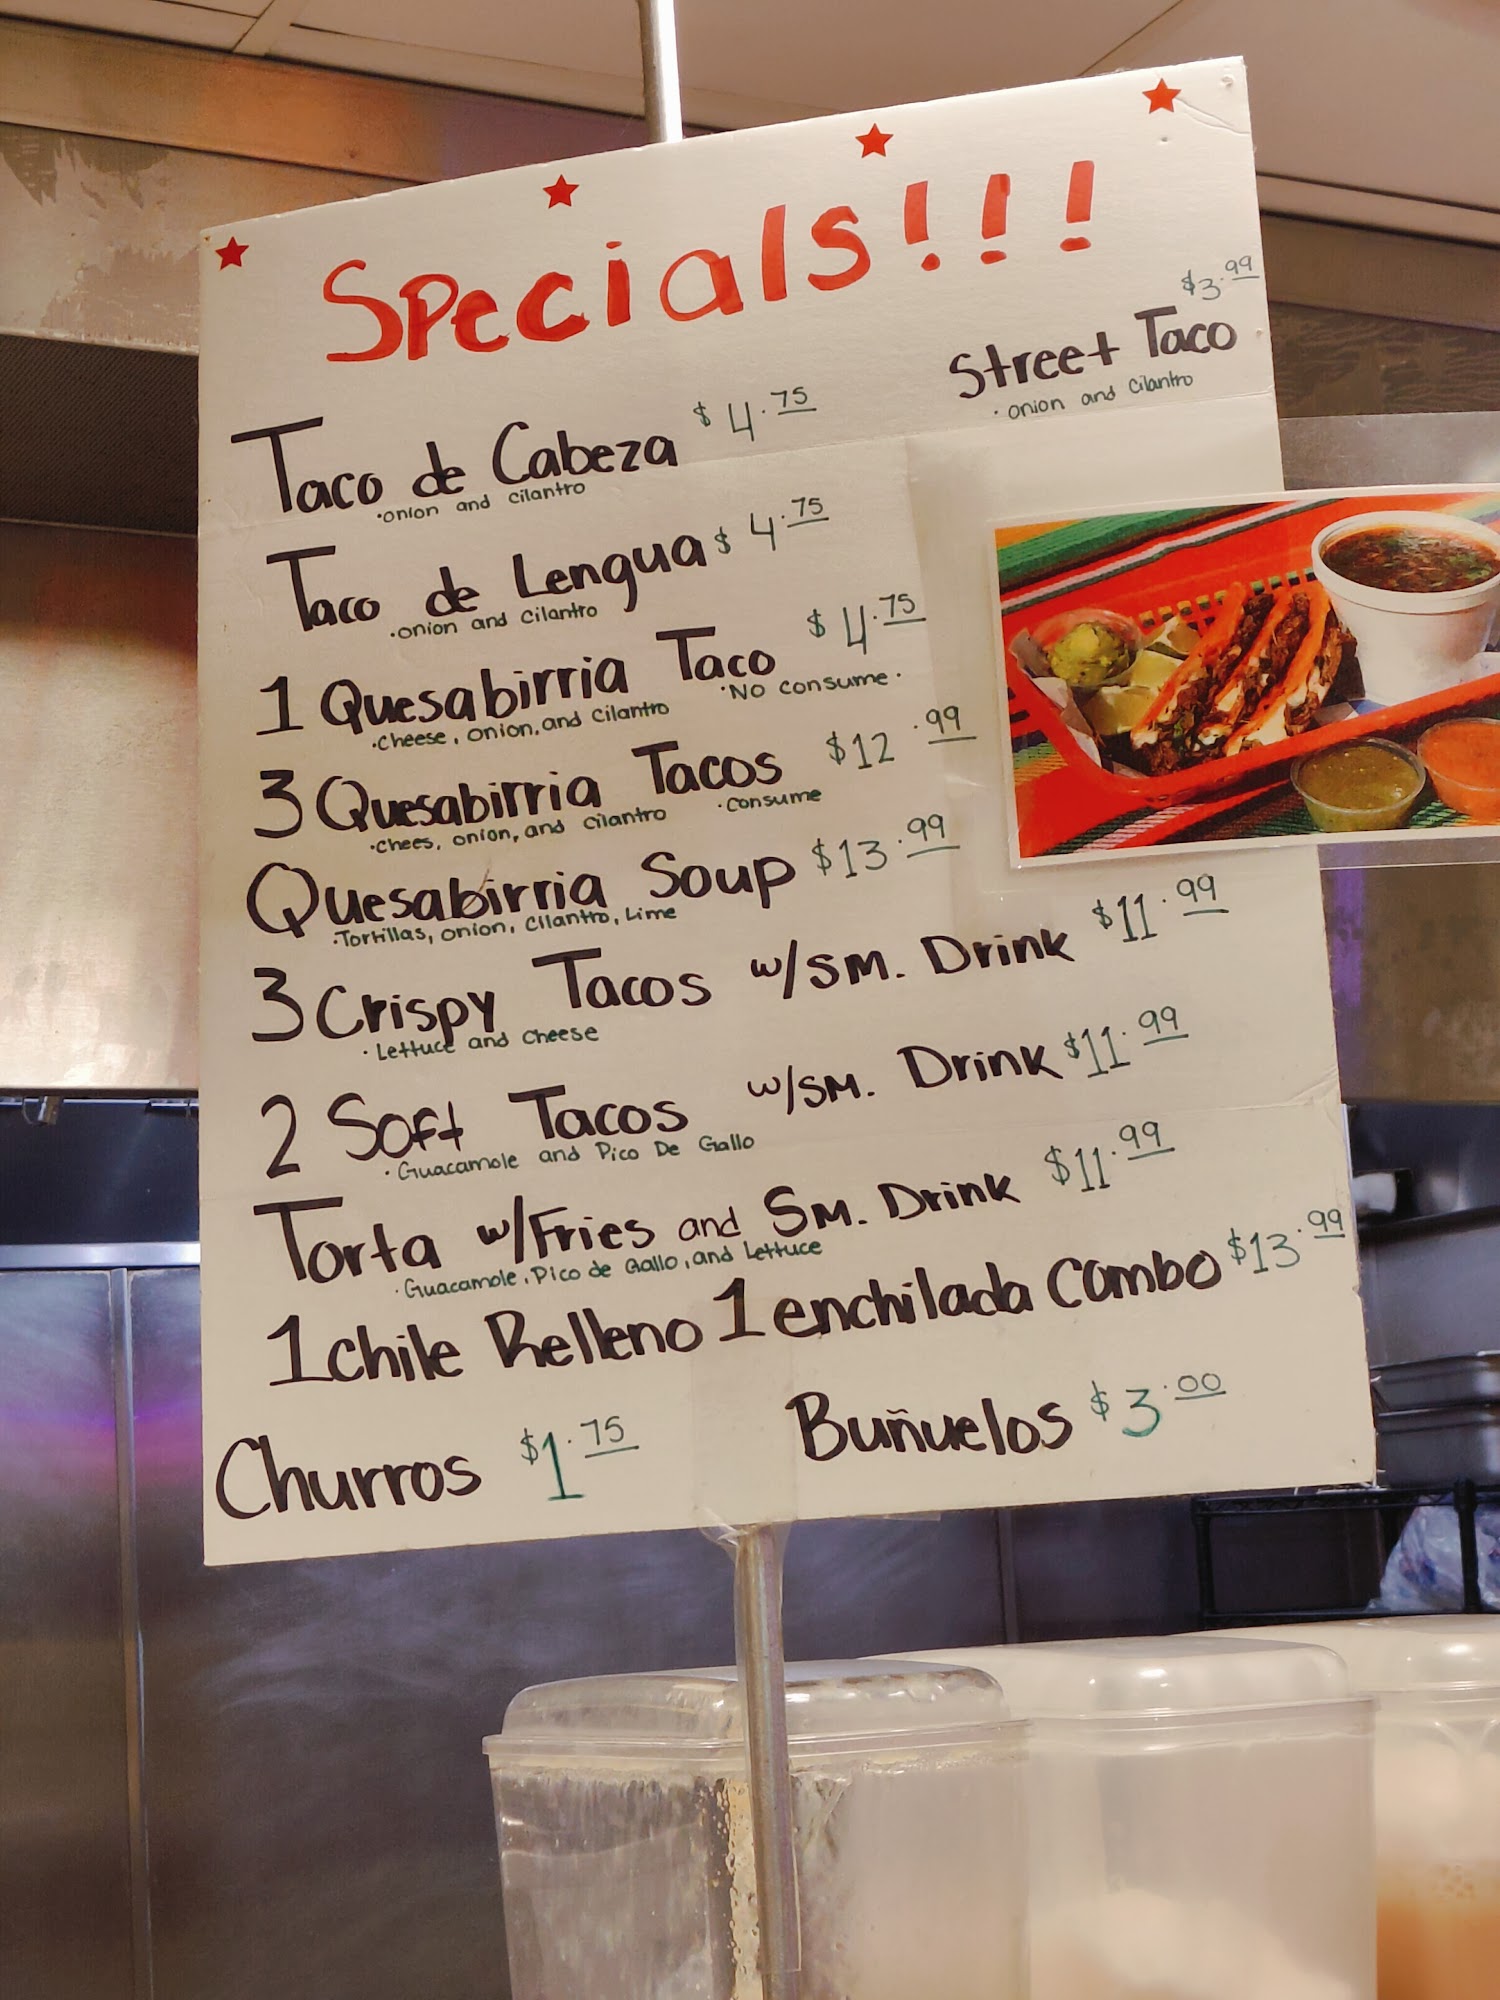 Specials!!!
$3.99
Street Taco
·onion and cilantro
Taco de Cabeza $4.75
·onion and cilantro
Taco de Lengua $4.75
·onion and cilantro
1 Quesabirria Taco $4.75
·cheese, onion, and cilantro ·No consume·
3 Quesabirria Tacos $12.99
·chees, onion, and cilantro ·consume
Quesabirria Soup $13.99
·Tortillas, onion, cilantro, Lime
3 Crispy Tacos w/SM. Drink $11.99
·Lettuce and cheese
2 Soft Tacos w/SM. Drink $11.99
·Guacamole and Pico De Gallo
Torta w/Fries and SM. Drink $11.99
·Guacamole, Pico de Gallo, and Lettuce
1 chile Relleno 1 enchilada combo $13.99
Churros $1.75
Buñuelos $3.00